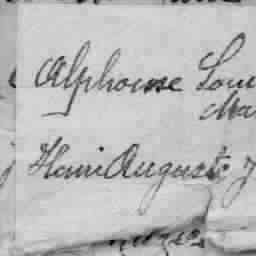 Alphonse Loui
Ma
Henri Auguste J